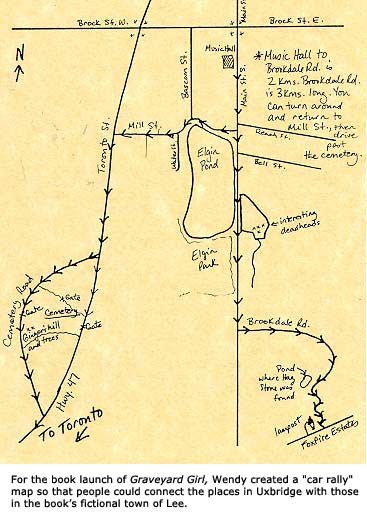 Brock St. W.
Main St.
Brock St. E.
N
Music Hall
Bascom St.
Main St. S.
* Music Hall to
Brookdale Rd. is
2 Kms. Brookdale Rd.
is 3 Kms. long. You
can turn around
and return to
Mill St., then
drive
past
the cemetery.
Mill St.
Toronto St.
Water St.
Reach St.
Bell St.
Elgin
Pond
Elgin
Park
interesting
deadheads
Cemetery Road
Gate
Gate
Cemetery
Gate
hill
and trees
Hwy. 47
To Toronto
Brookdale Rd.
Pond
where Hag
Stone was
found
lamppost
Foxfire Estates
For the book launch of Graveyard Girl, Wendy created a "car rally"
map so that people could connect the places in Uxbridge with those
in the book's fictional town of Lee.